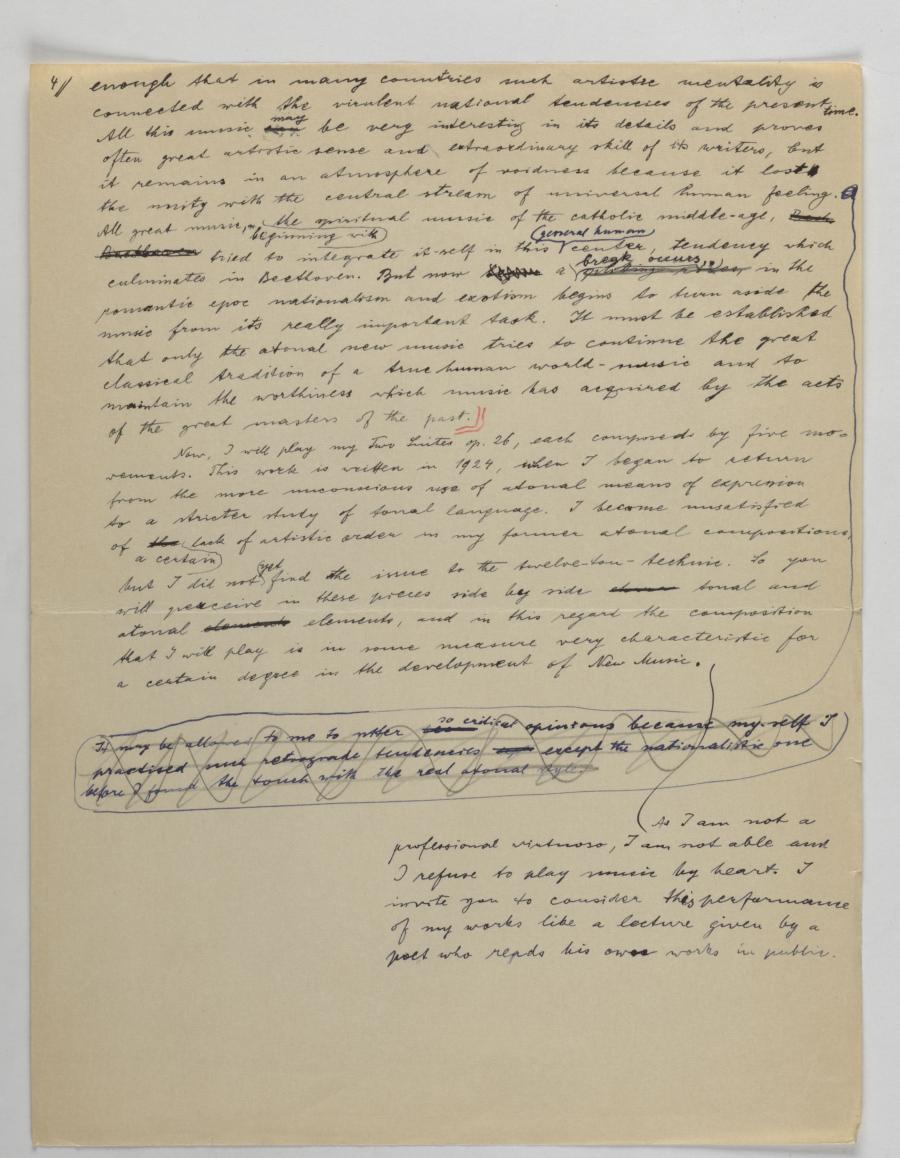 4// enough that in many countries such artistic mentality is
connected with the virulent national tendencies of the present time.
All this music may be very interesting in its details and proves
often great artistic sense and extraordinary skill of its writers, but
it remains in an atmosphere of voidness because it lost
the unity with the central stream of universal human feeling.
All great music, beginning with the spiritual music of the catholic middle-age, Bach
Beethoven tried to integrate it-self in this general human center, tendency which
culminates in Beethoven. But now a break occurs: in the
romantic epoc nationalism and exotism begins to turn aside the
music from its really important task. It must be established
that only the atonal new music tries to continue the great
classical tradition of a true human world-music and to
maintain the worthiness which music has acquired by the acts
of the great masters of the past.
Now, I will play my Two Suites op. 26, each composed by five mo-
vements. This work is written in 1924, when I began to return
from the more unconscious use of atonal means of expression
to a stricter study of tonal language. I become unsatisfied
of the a certain lack of artistic order in my former atonal compositions,
but I did not yet find the issue to the twelve-ton-technic. So you
will perceive in these pieces side by side tonal and
atonal elements elements, and in this regard the composition
that I will play is in some measure very characteristic for
a certain degree in the development of New Music.
It may be allowed to me to utter so critical opinions because my-self I
practised such retrograde tendencies except the nationalistic one
before I found the touch with the real atonal style.
As I am not a
professional virtuoso, I am not able and
I refuse to play music by heart. I
invite you to consider this performance
of my works like a lecture given by a
poet who reads his own works in public.